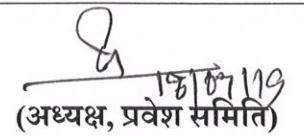 18/07/19
(अध्यक्ष, प्रवेश समिति)